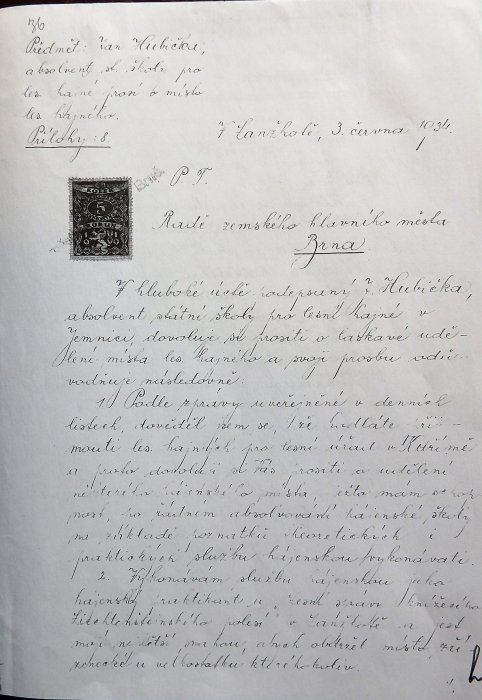 36
Předmět: Jan Hubička,
absolvent st. školy pro
les. hajné prosí o místo
les. hajného.
Přílohy: 8.
V Lanžhotě, 3. června 1934.
P. T.
KOLEK
5
KORUN
Brně
Radě zemského hlavního města
Brna
V hluboké úctě podepsaný J. Hubička,
absolvent státní školy pro lesní hajné v
Jemnici, dovoluje si prositi o laskavé udě-
lení místa les. hajného a svoji prosbu odů-
vodňuje následovně:
1) Podle zprávy uveřejněné v denních
listech, dověděl jsem se, že hodláte při-
mouti les. hajných pro lesní úřad v Kuřimě
a proto dovoluji si Vás prositi o udělení
některého hájenského místa, ježto mám schop-
nost, po řádném absolvování hájenské školy
na základě poznatků theoretických i
praktických službu hájenskou vykonávati.
2. Vykonávám službu hájenskou jako
hájenský praktikant u lesní správy knížecího
Liechtensteinského polesí v Lanžhotě a jest
mojí největší snahou, abych obdržel místo zří-
zenecké u velkostatku kteréhokoliv.